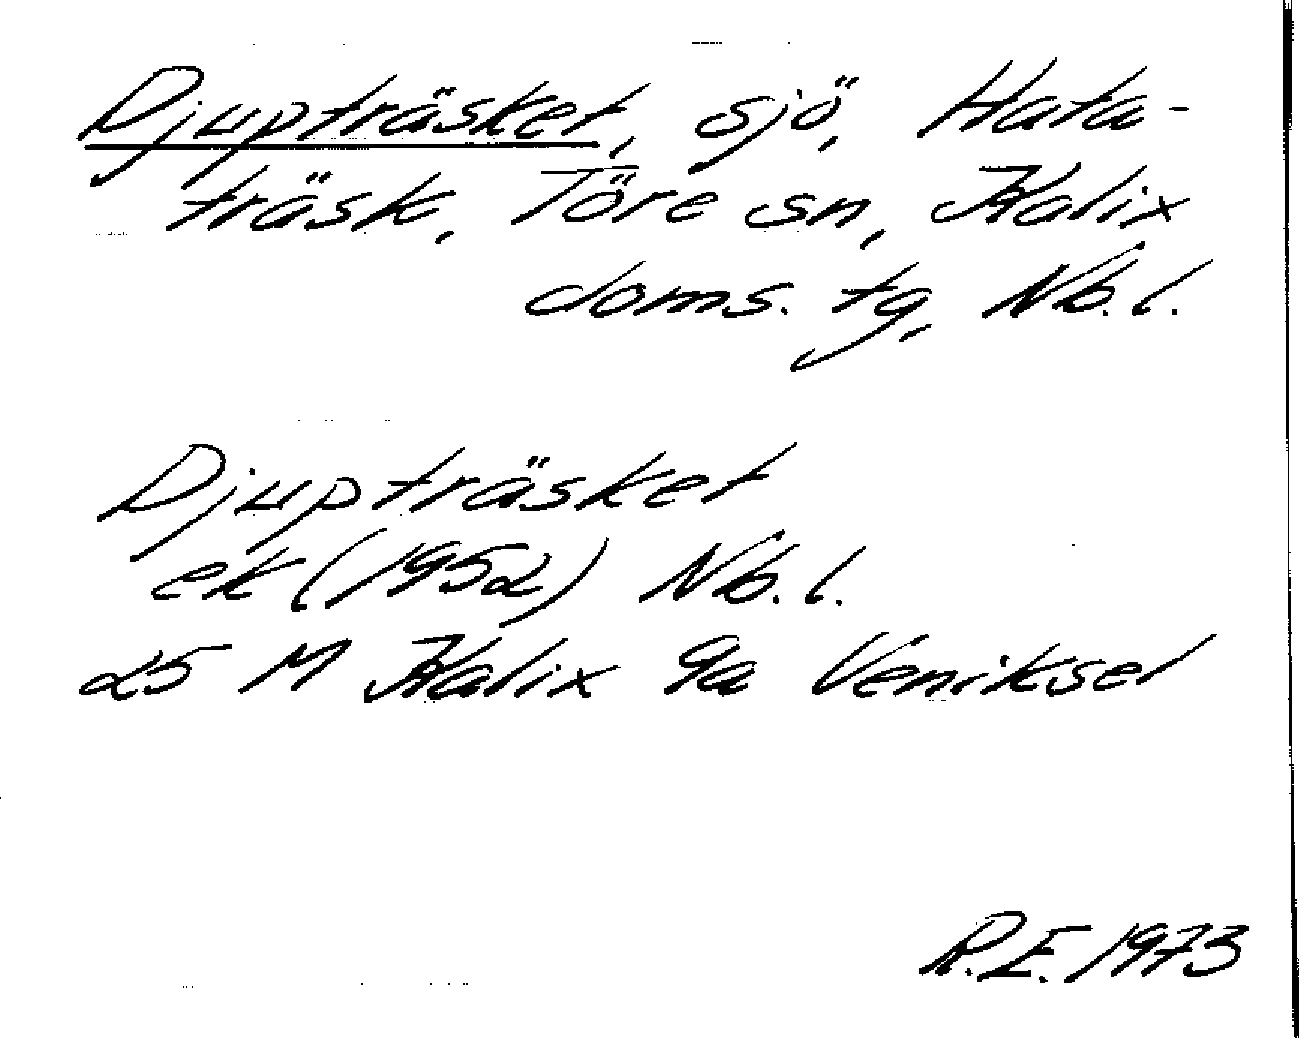 Djupträsket, sjö, Hata-
träsk, Töre sn, Kalix
doms. tg, Nb. l.
Djupträsket
ek (1952) Nb. l.
25 M Kalix 9a Veniksel
R.E. 1973